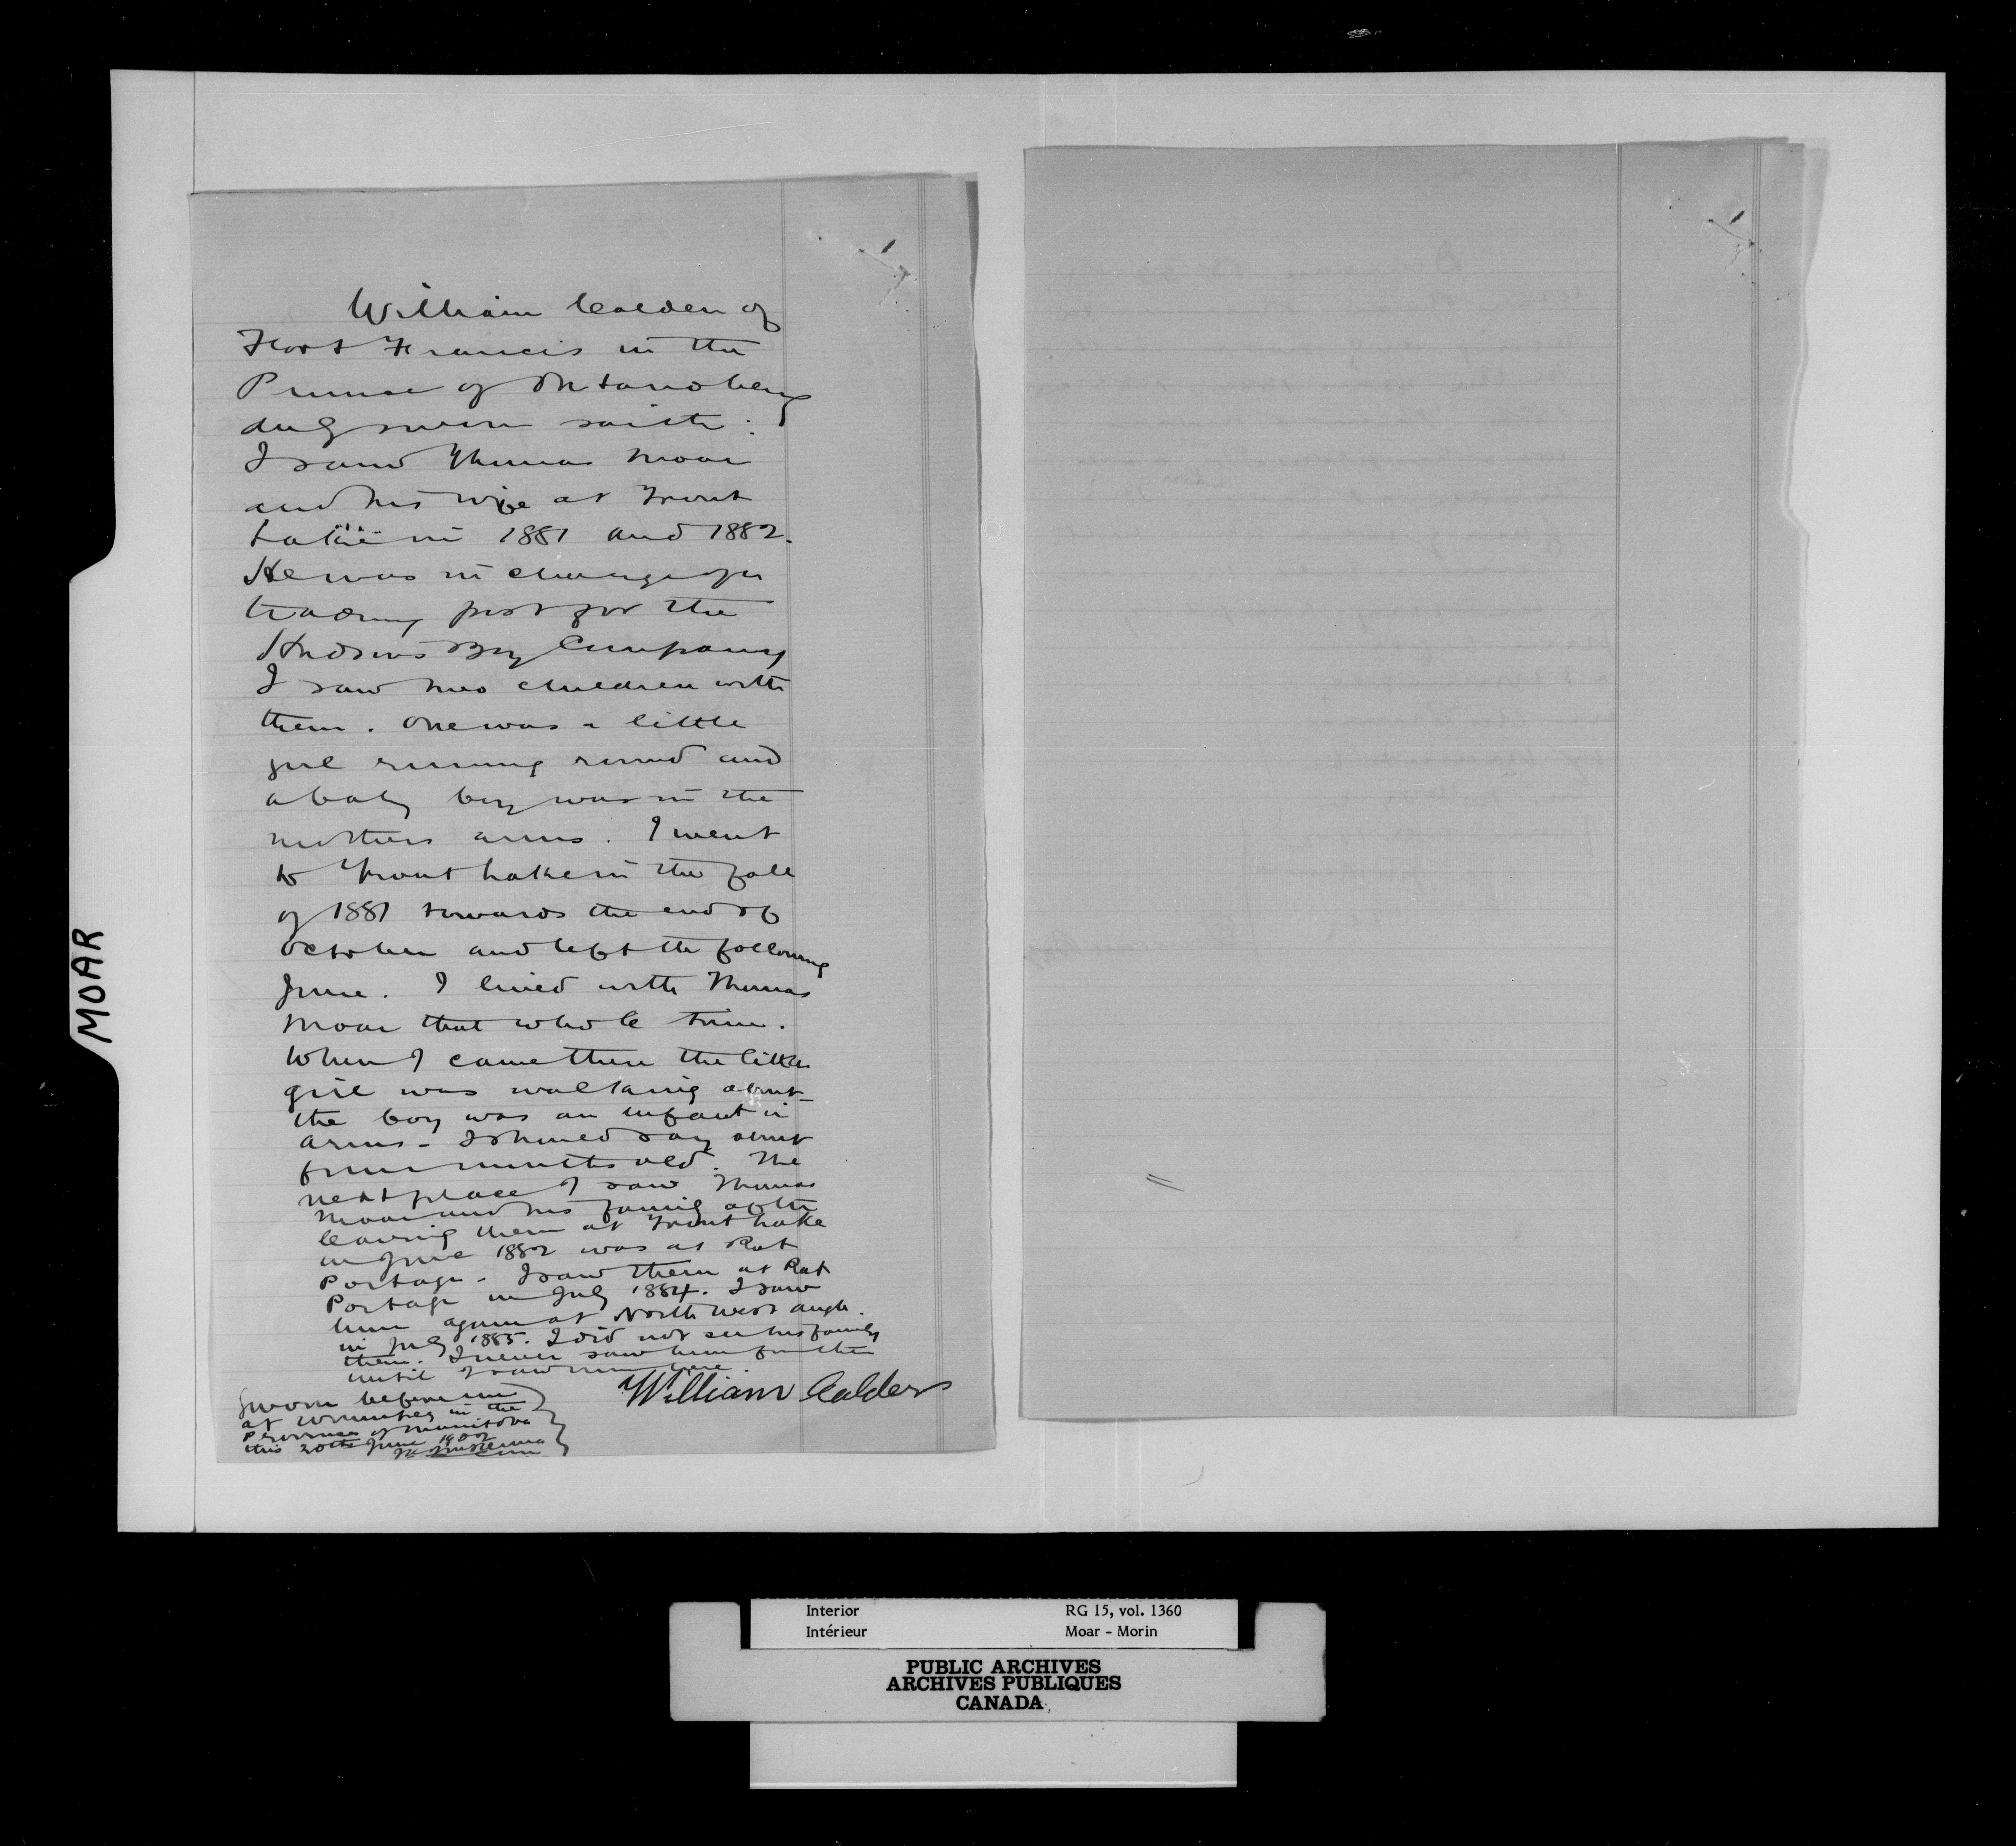 William Calder of
Fort Francis in the
Province of Ontario being
duly sworn saith:
I saw Thomas Moar
and his wife at Trout
Lake in 1881 and 1882.
He was in charge of a
trading post for the
Hudsons Bay Company
I saw two children with
them. One was a little
girl running round and
a baby boy was in the
mothers arms. I went
to Trout Lake in the fall
of 1881 towards the end of
October and left the following
June. I lived with Thomas
Moar that whole time.
When I came there the little
girl was walking about
the boy was an infant in
arms - I should say about
four months old. The
next place I saw Thomas
Moar and his family after
leaving them at Trout Lake
in June 1882 was at Rat
Portage - I saw them at Rat
Portage in July 1884. I saw
him again at North West angle
in July 1885. I did not see his family
there. I never saw him further
until I saw him here.
William Calder
Sworn before me
at Winnipeg in the
Province of Manitoba
this 20th June 1902
MOAR
Interior
Intérieur
RG 15, vol. 1360
Moar - Morin
PUBLIC ARCHIVES
ARCHIVES PUBLIQUES
CANADA